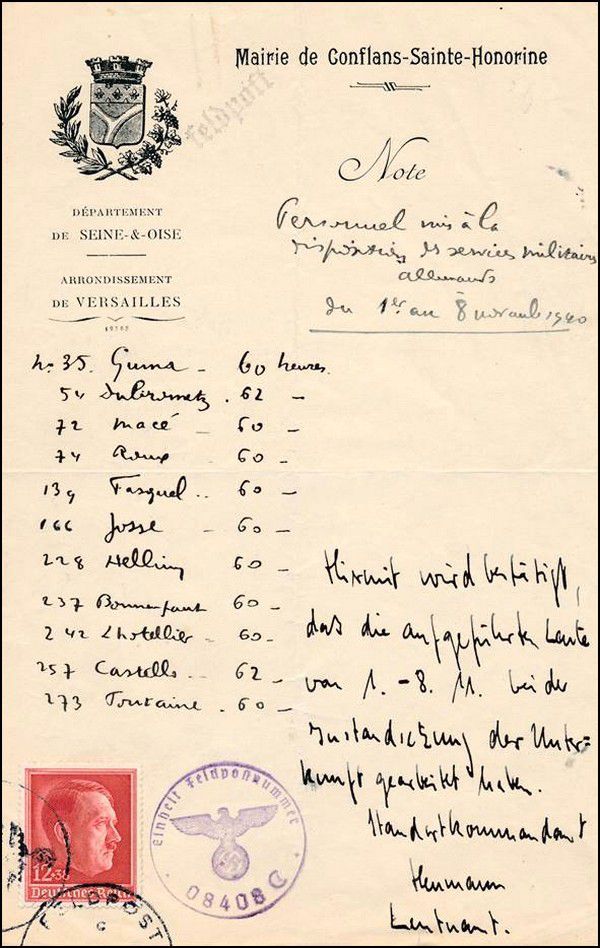 Mairie de Conflans-Sainte-Honorine
Feldpost
Note
DÉPARTEMENT
DE SEINE-&-OISE
ARRONDISSEMENT
DE VERSAILLES
Personnel mis à la
disposition des services militaires
allemands
du 1er au 8 novemb 1940
No 35. Guma - 60 heures.
54 . 62 -
72 Macé - 60 -
74 Roux - 60 -
139 Fasquel .. 60 -
166 Josse - 60 -
228 Helling 60 -
237 Bonnefant 60 -
242 Lhotellier - 60 -
257 Castello .. 62 -
273 Fontaine . 60 -
Hiermit wird bestätigt,
daß die aufgeführten Leute
von 1. - 8. 11. bei der
Instandsetzung der Unter-
kunft gearbeitet haben.
Standortkommandant
Hermann
Leutnant.
Einheit Feldpostnummer
08408 C
12+38
Deutsches Reich
FELDPOST
c